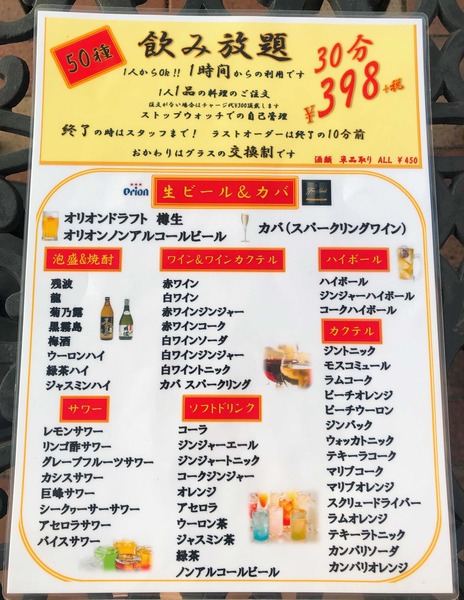 50種
飲み放題
30分
¥398+税
1人からOk!! 1時間からの利用です
1人1品の料理のご注文
注文がない場合はチャージ代¥300頂戴します
ストップウォッチでの自己管理
終了の時はスタッフまで! ラストオーダーは終了の10分前
おかわりはグラスの交換制です
酒類 単品取り ALL ¥450
Orion
生ビール&カバ
オリオンドラフト 樽生
オリオンノンアルコールビール
カバ(スパークリングワイン)
泡盛&焼酎
残波
龍
菊乃露
黒霧島
梅酒
ウーロンハイ
緑茶ハイ
ジャスミンハイ
ワイン&ワインカクテル
赤ワイン
白ワイン
赤ワインジンジャー
赤ワインコーク
白ワインソーダ
白ワインジンジャー
白ワイントニック
カバ スパークリング
ハイボール
ハイボール
ジンジャーハイボール
コークハイボール
カクテル
ジントニック
モスコミュール
ラムコーク
ピーチオレンジ
ピーチウーロン
ジンバック
ウォッカトニック
テキーラコーク
マリブコーク
マリブオレンジ
スクリュードライバー
ラムオレンジ
テキーラトニック
カンパリソーダ
カンパリオレンジ
サワー
レモンサワー
リンゴ酢サワー
グレープフルーツサワー
カシスサワー
巨峰サワー
シークヮーサーサワー
アセロラサワー
バイスサワー
ソフトドリンク
コーラ
ジンジャーエール
ジンジャートニック
コークジンジャー
オレンジ
アセロラ
ウーロン茶
ジャスミン茶
緑茶
ノンアルコールビール